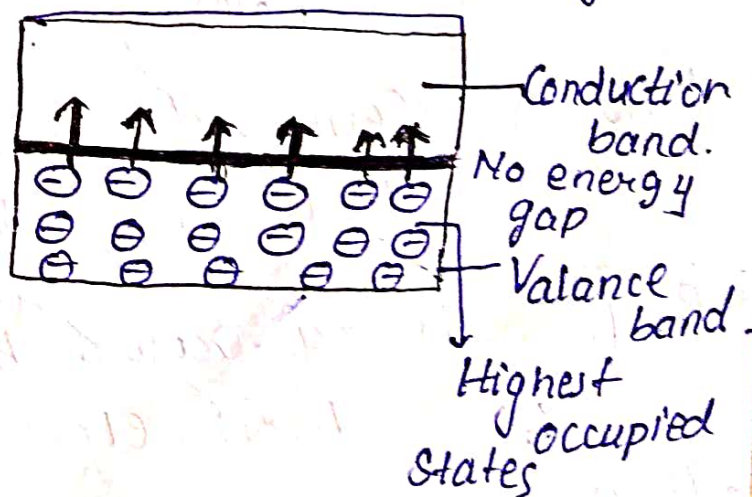 Conduction
band.
No energy
gap
Valance
band.
Highest
occupied
States